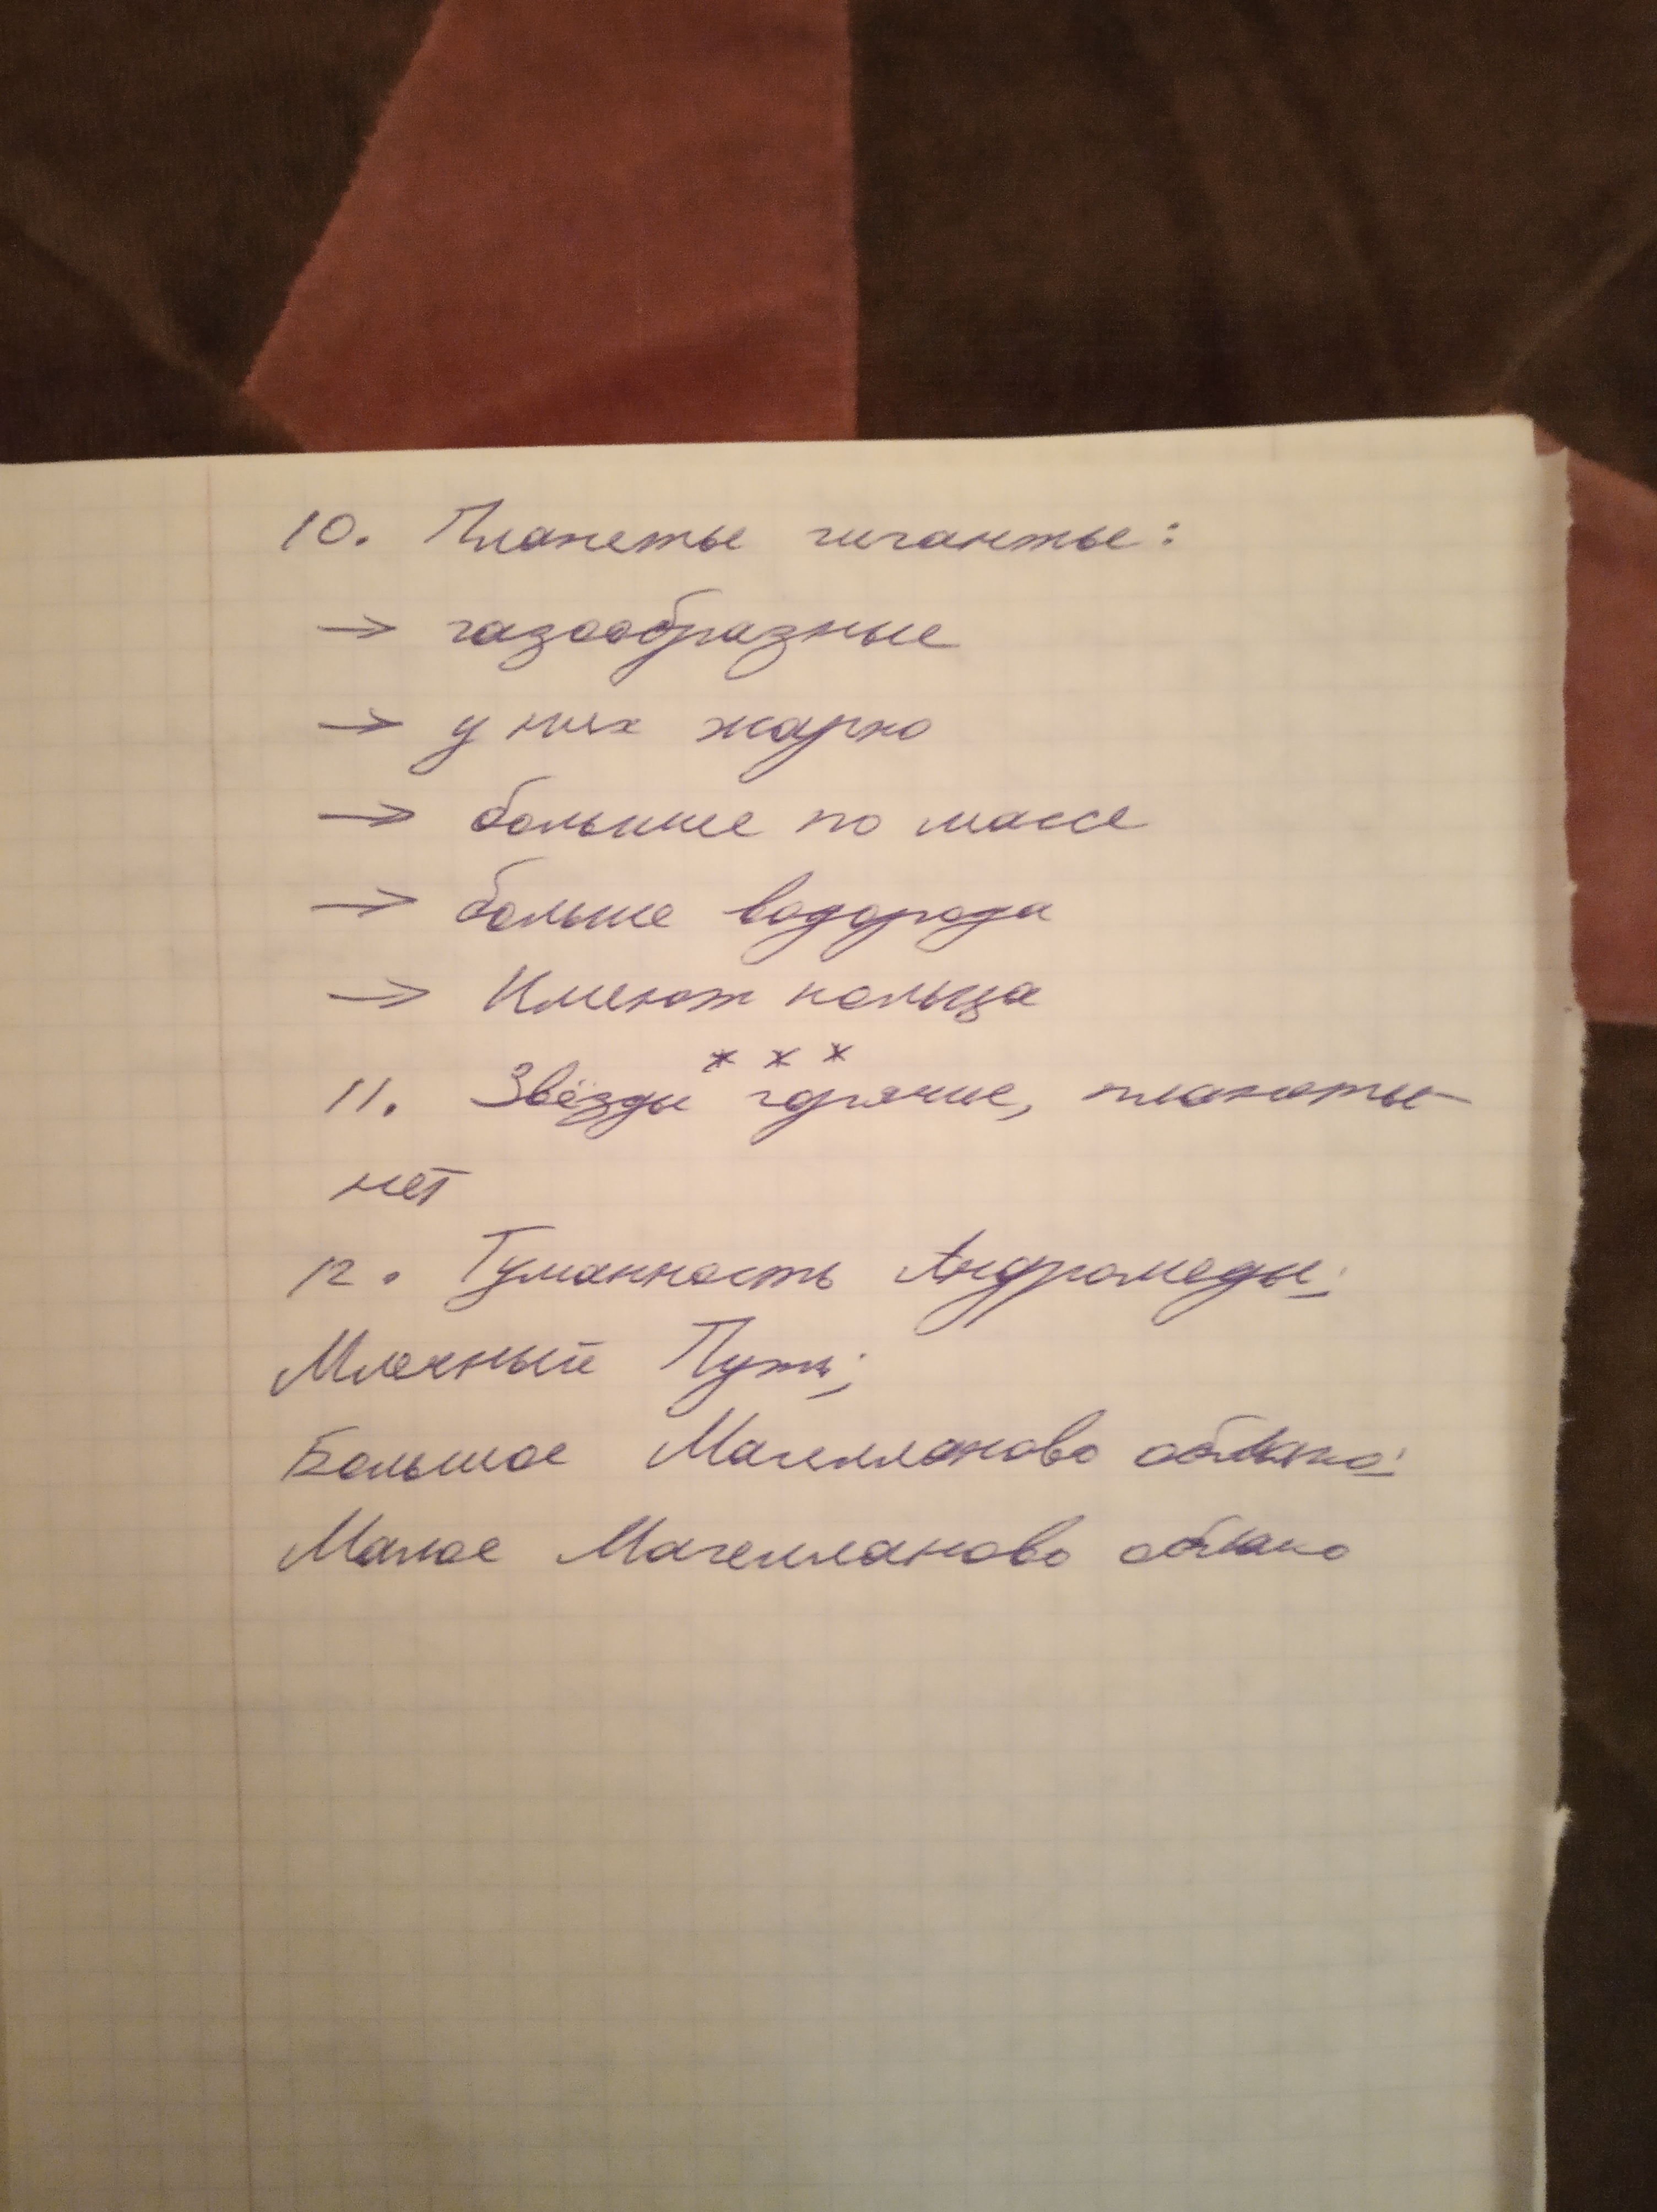 10. Планеты гиганты:
→ газообразные
→ у них жарко
→ больше по массе
→ больше водорода
→ Имеют кольца
* * *
11. Звёзды горячие, планеты-
нет
12. Туманность Андромеды;
Млечный Путь;
Большое Магелланово облако;
Малое Магелланово облако